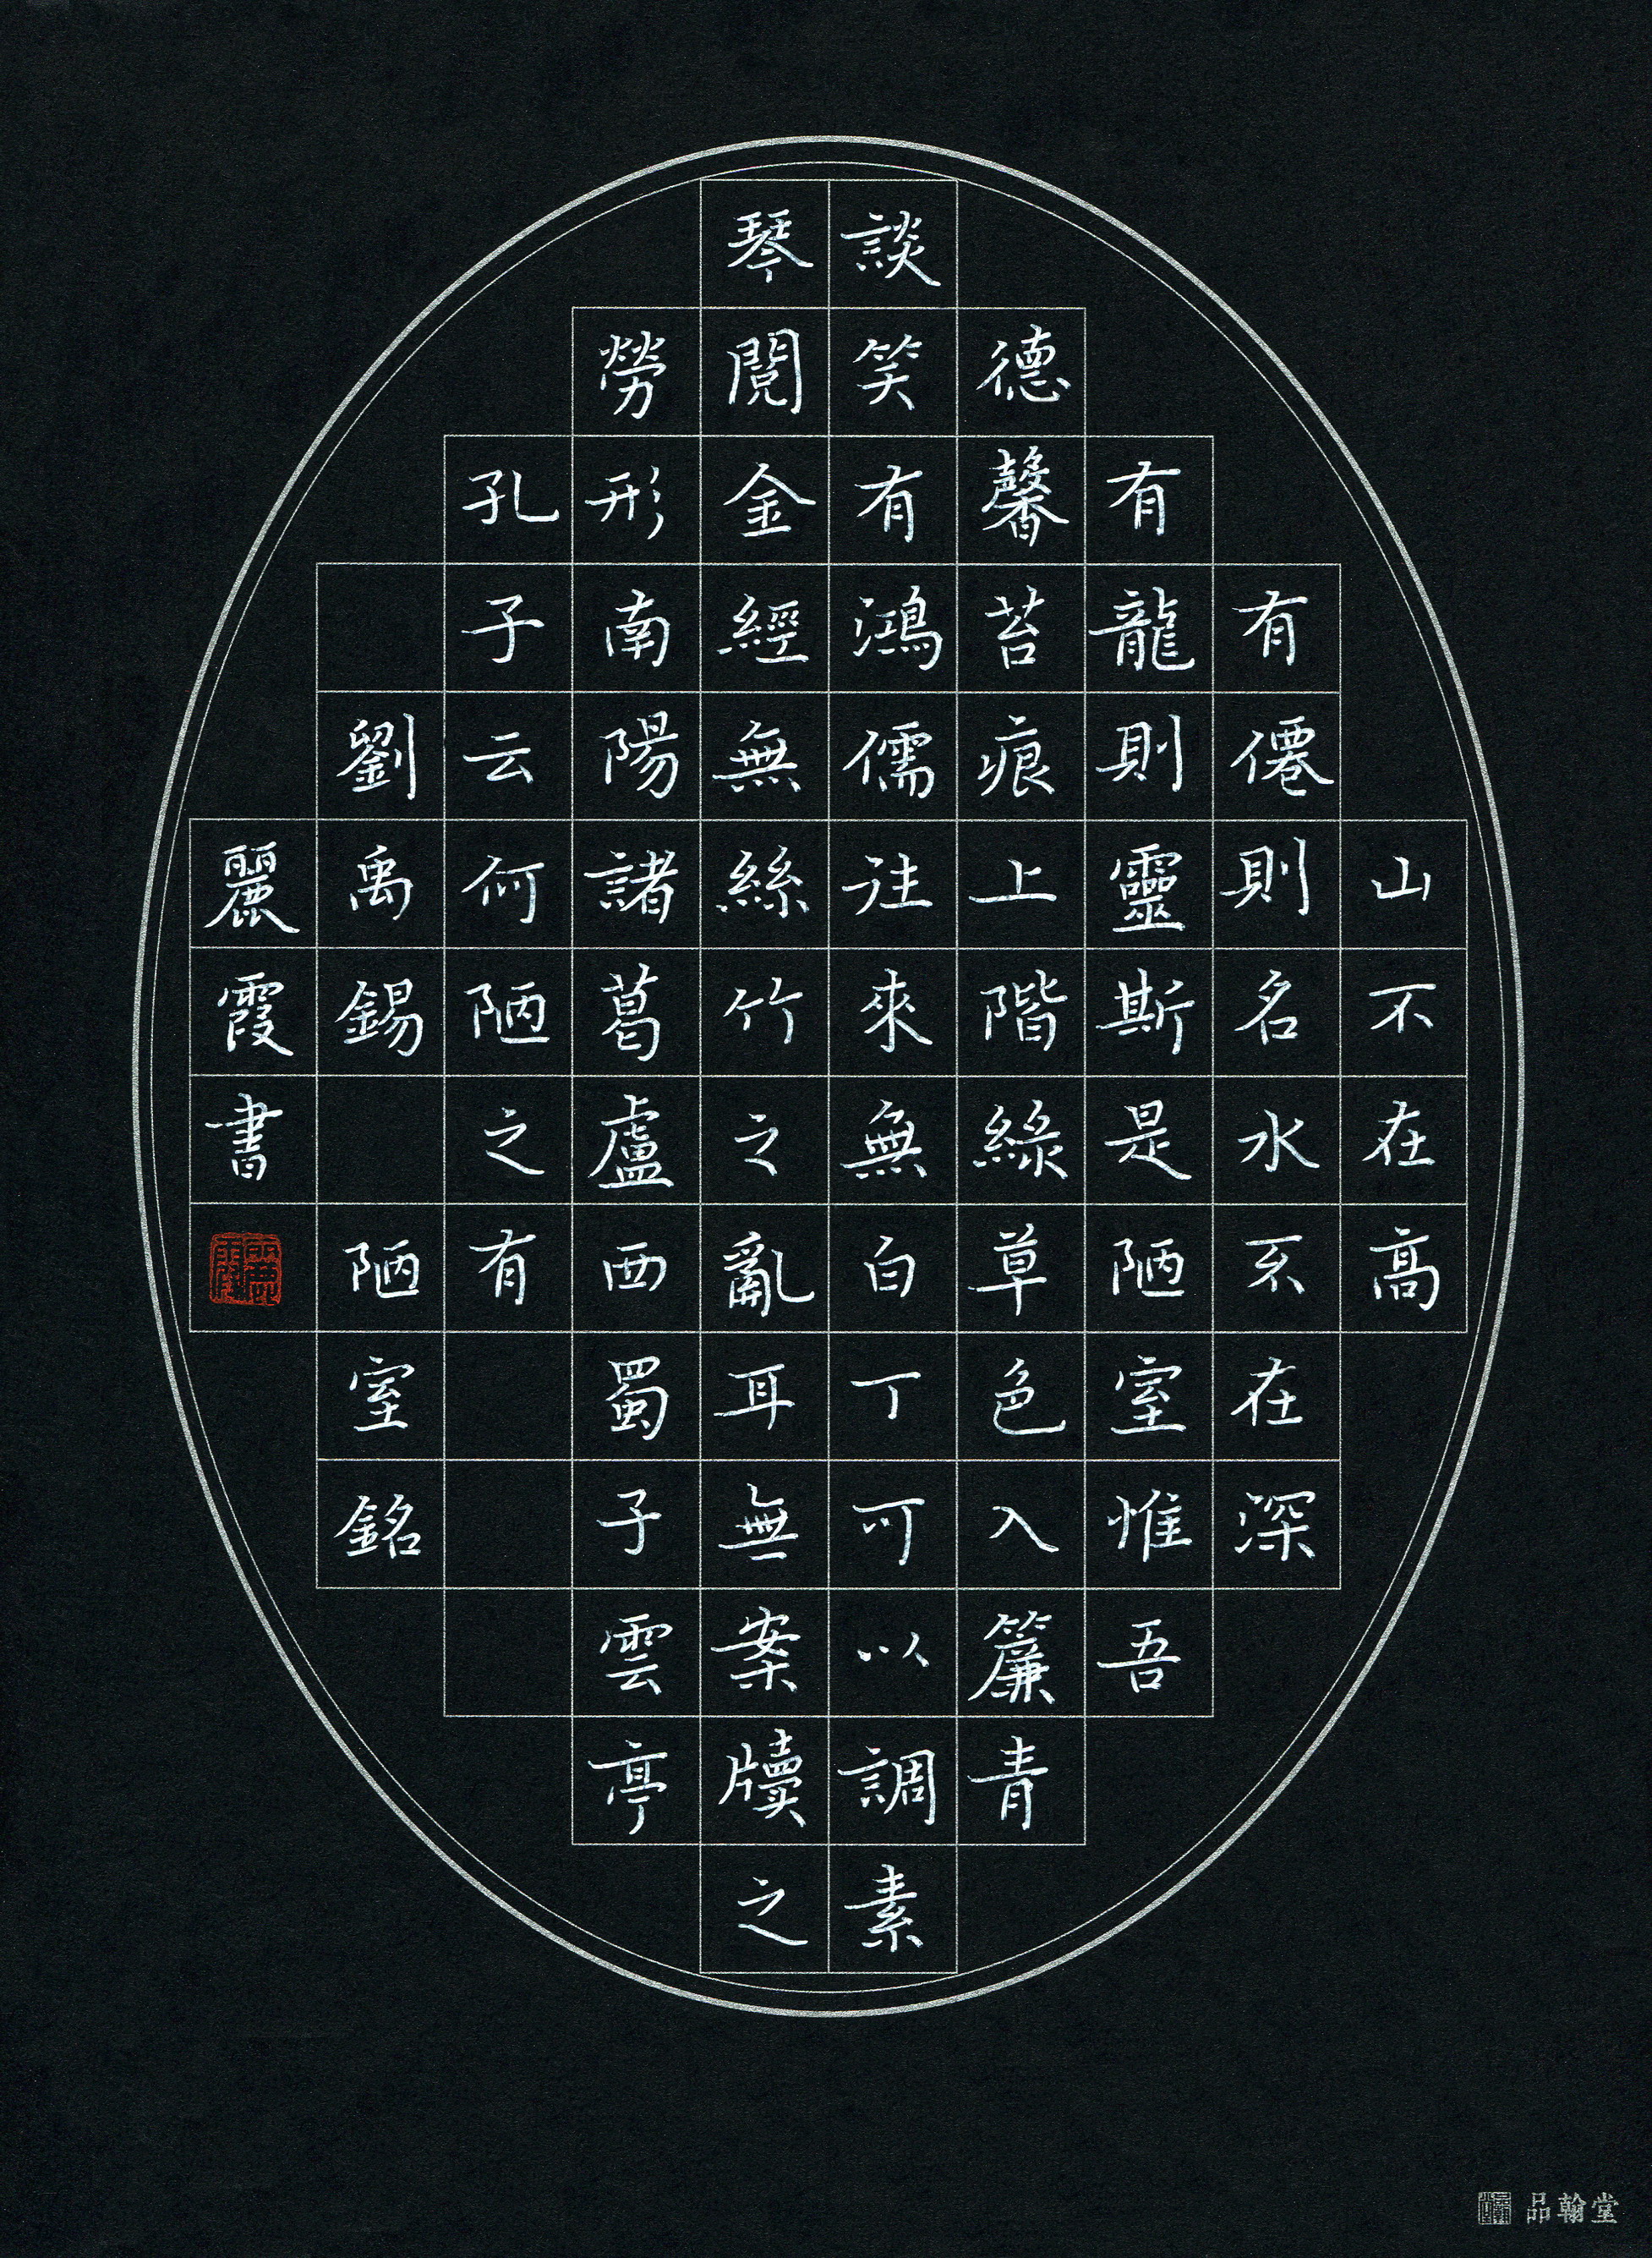 山不在高
有僊則名水不在深
有龍則靈斯是陋室惟吾
德馨苔痕上階綠草色入簾青
談笑有鴻儒往來無白丁可以調素
琴閱金經無絲竹之亂耳無案牘之
勞形南陽諸葛盧西蜀子雲亭
孔子云何陋之有
劉禹錫 陋室銘
麗霞書
麗霞
品翰堂